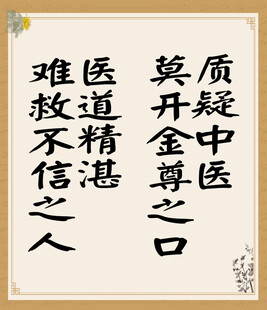 质疑中医
莫开金尊之口
医道精湛
难救不信之人